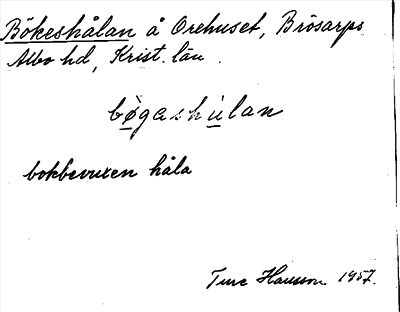 Bökeshålan å Orehuset, Brösarps
Albo hd, Krist. län.
bøgashulan
bokbevuxen håla
Ture Hansson 1957.